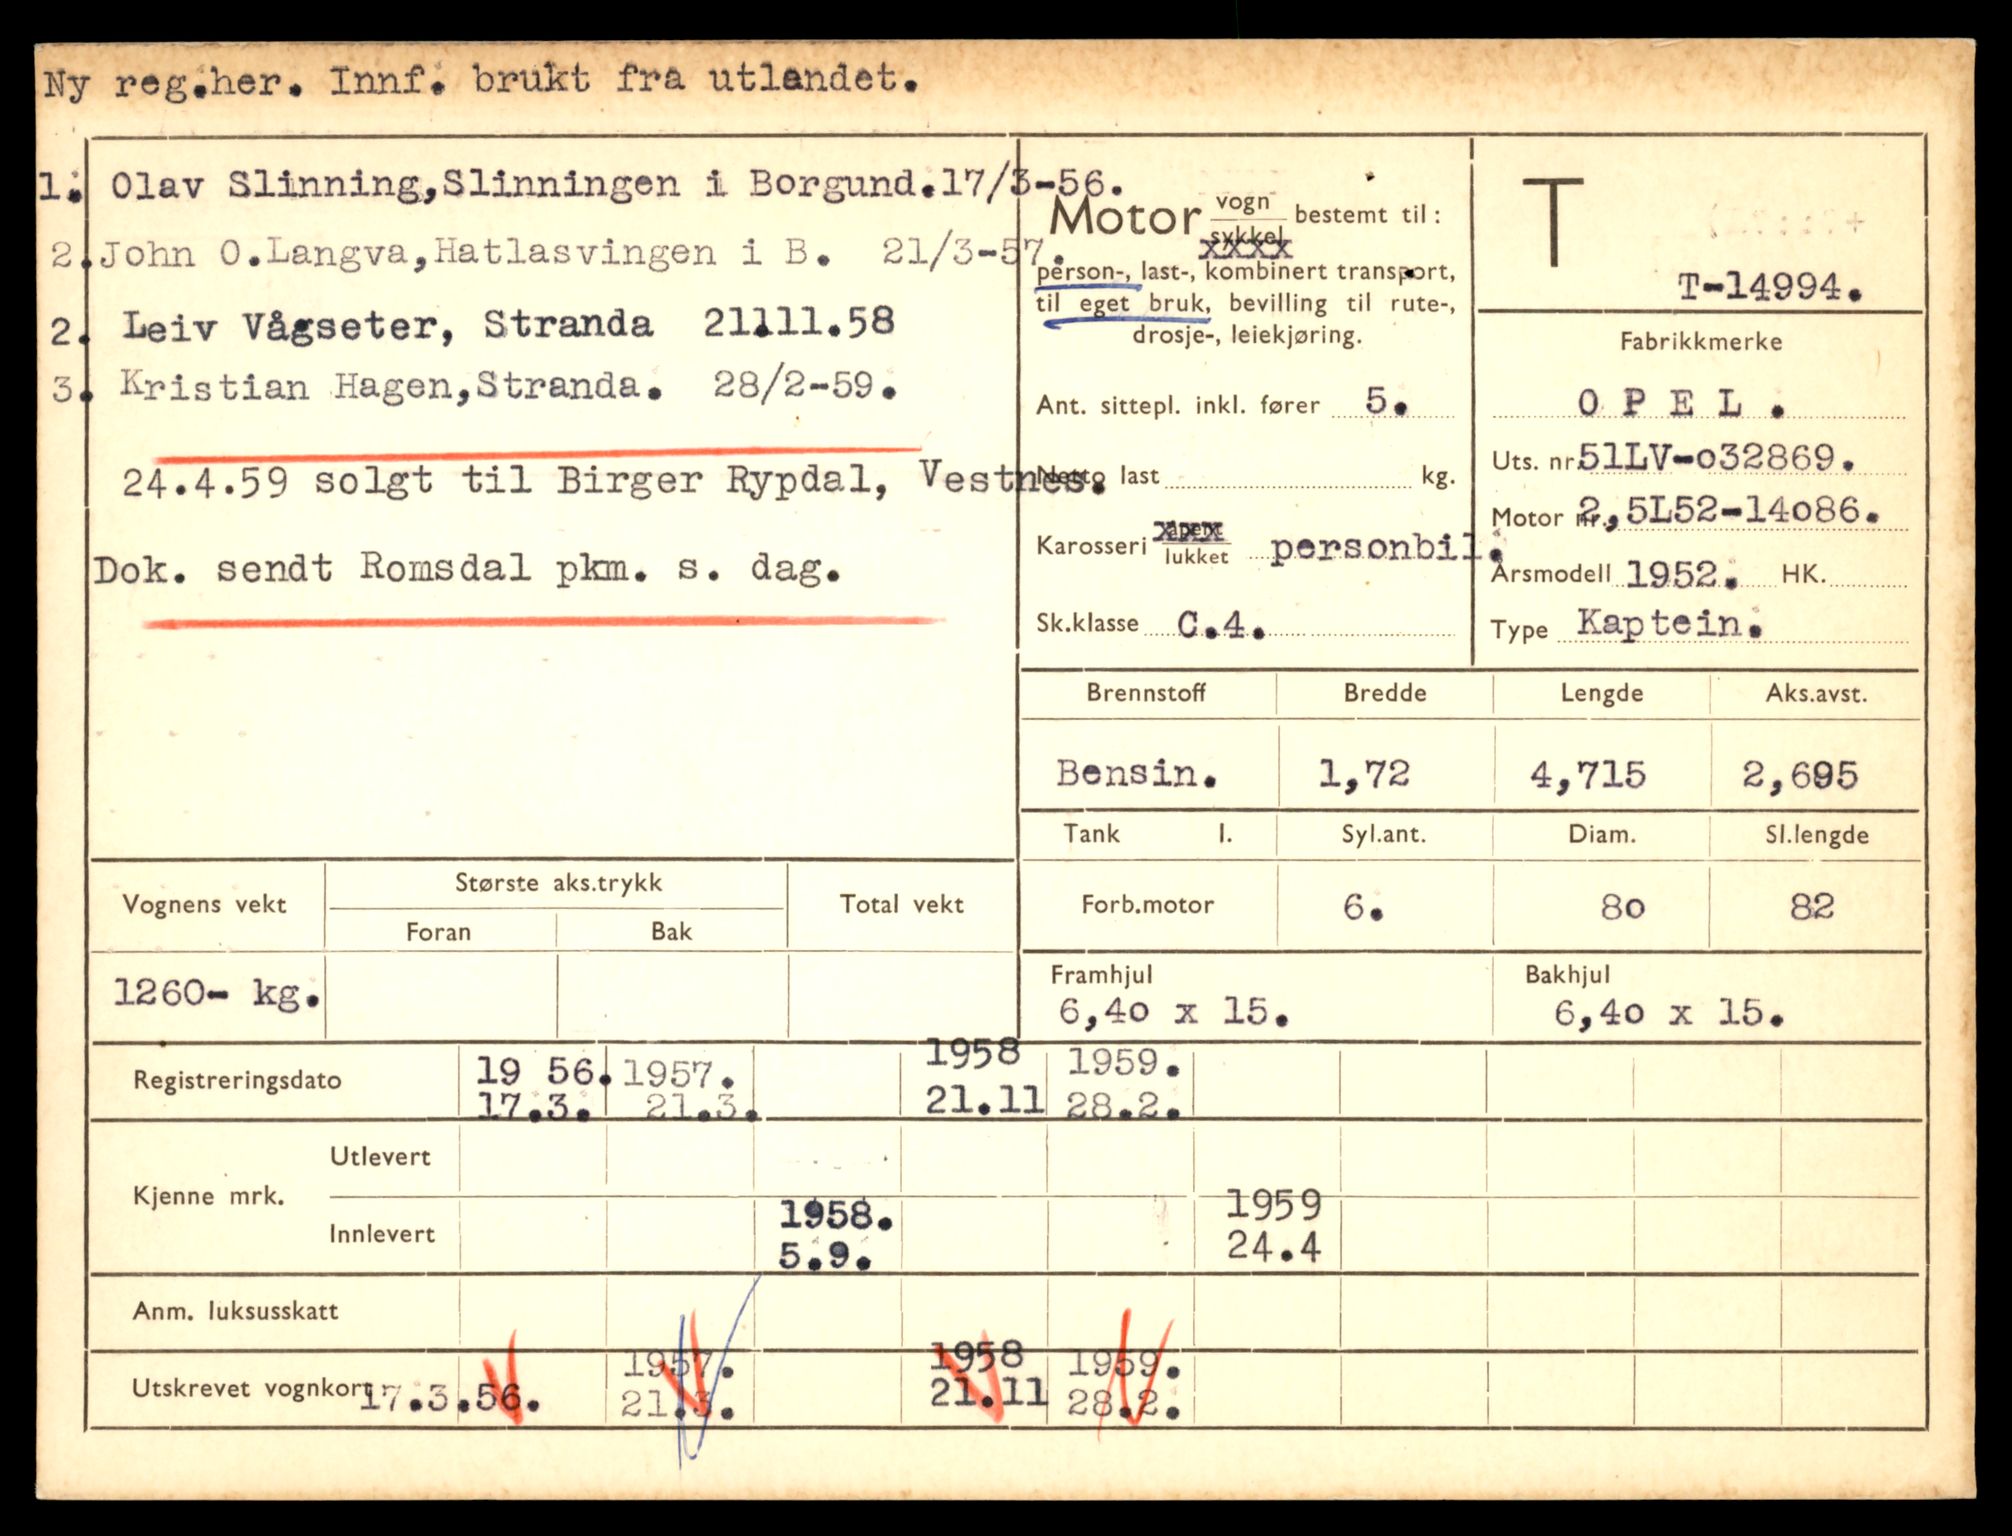 Ny reg.her. Innf. brukt fra utlandet.
1. Olav Slinning,Slinningen i Borgund.17/3-56.
2.John O.Langva,Hatlasvingen i B. 21/3-57.
2. Leiv Vågseter, Stranda 21.11.58
3. Kristian Hagen,Stranda. 28/2-59.
24.4.59 solgt til Birger Rypdal, Vestnes.
Dok. sendt Romsdal pkm. s. dag.
Motor vogn
sykkel bestemt til:
xxxx
person-, last-, kombinert transport,
til eget bruk, bevilling til rute-,
drosje-, leiekjøring.
Ant. sittepl. inkl. fører 5.
Netto last kg.
Karosseri åpent
xxx
lukket personbil.
Sk.klasse C.4.
T
T-14994.
Fabrikkmerke
O P E L .
Uts. nr. 51LV-o32869.
Motor nr. 2,5L52-14o86.
Årsmodell 1952. HK.
Type Kaptein.
Brennstoff Bredde Lengde Aks.avst.
Bensin. 1,72 4,715 2,695
Tank l. Syl.ant. Diam. Sl.lengde
Forb.motor 6. 8o 82
Framhjul Bakhjul
6,4o x 15. 6,4o x 15.
Vognens vekt Største aks.trykk Total vekt
Foran Bak
1260- kg.
Registreringsdato 19 56. 1957. 1958 1959.
17.3. 21.3. 21.11 28.2.
Kjenne mrk. Utlevert
Innlevert 1958. 1959
5.9. 24.4
Anm. luksusskatt
Utskrevet vognkort 17.3.56. 1957. 1958 1959.
21.3. 21.11 28.2.